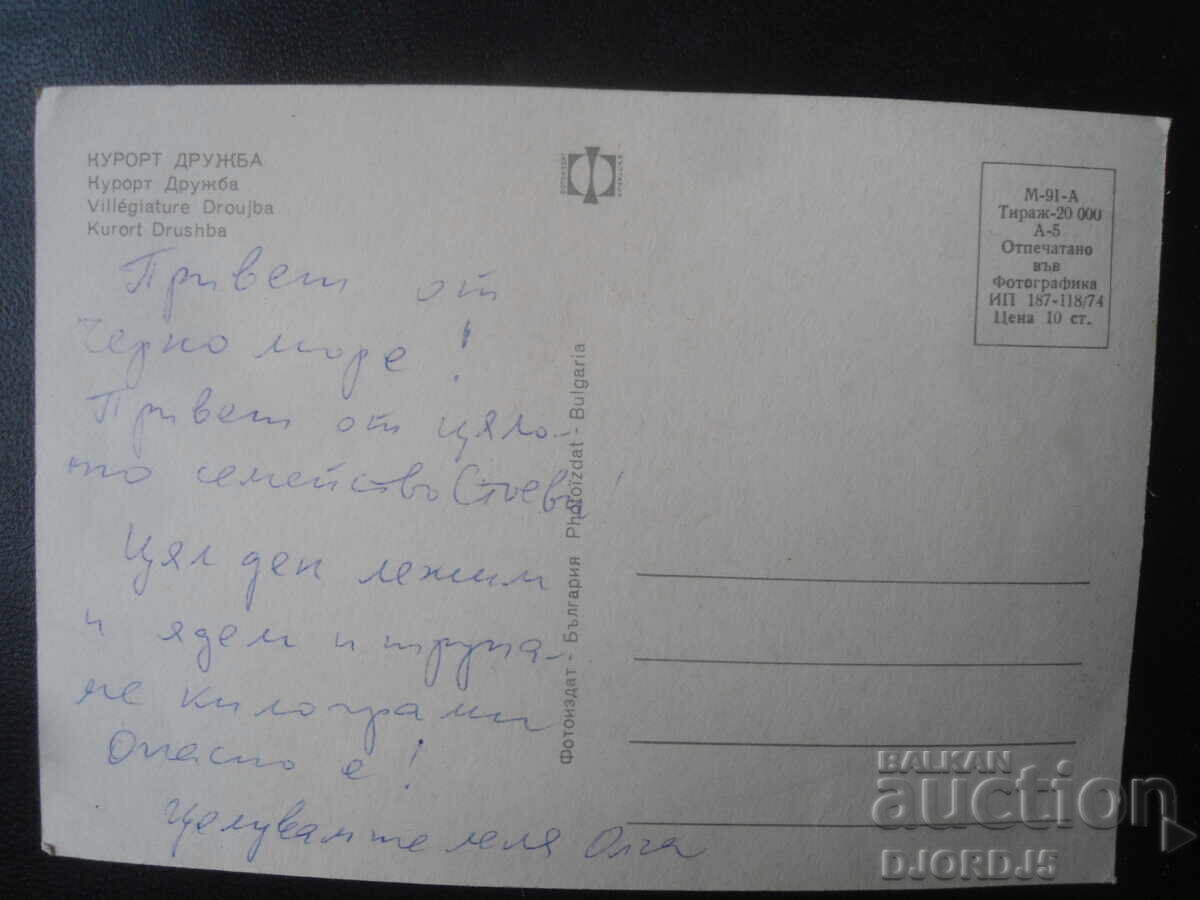 КУРОРТ ДРУЖБА
Курорт Дружба
Villégiature Droujba
Kurort Drushba
Привет от
Черно море!
Привет от цяло-
то семейство Стоеви!
Цял ден лежим
и ядем и трупа-
ме килограми
Опасно е!
Целувам те леля Олга
Фотоиздат - България Photoïzdat - Bulgaria
М-91-А
Тираж-20 000
А-5
Отпечатано
във
Фотографика
ИП 187-118/74
Цена 10 ст.
BALKAN
auction
DJORDJ5